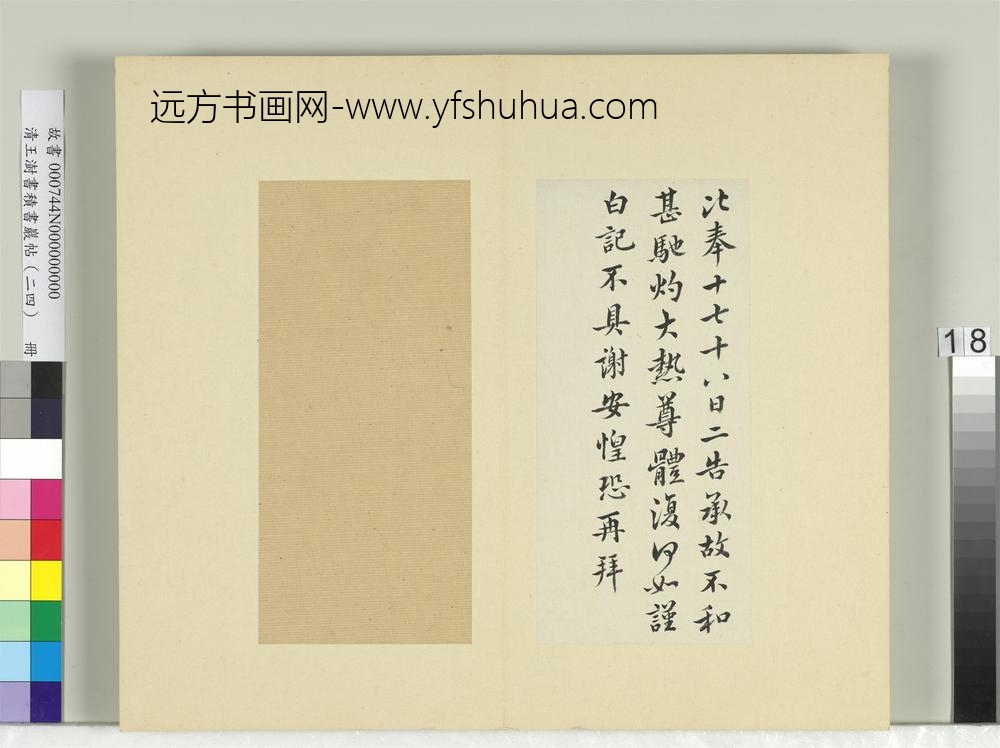 远方书画网-www.yfshuhua.com
故書 000744N000000000
清王澍書積書巖帖（二四） 冊
18
比奉十七十八日二告承故不和
甚馳灼大熱尊體復何如謹
白記不具謝安惶恐再拜